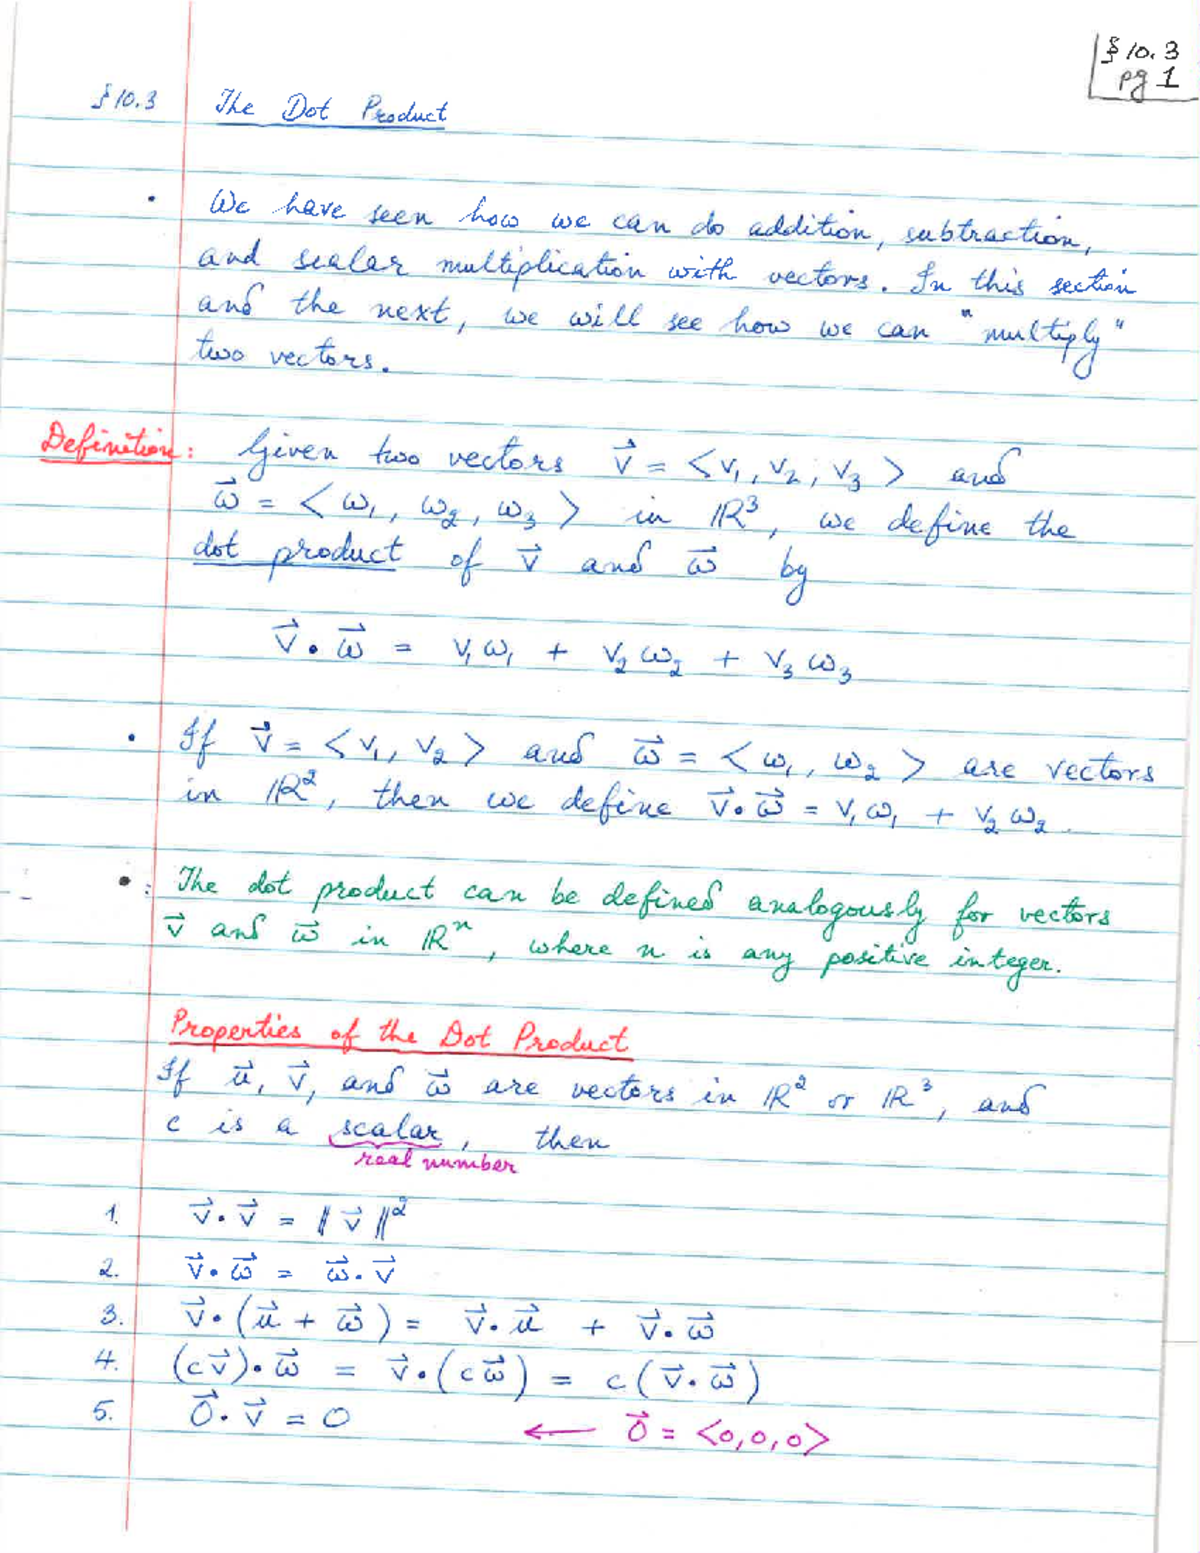 § 10.3
pg 1
§ 10.3 The Dot Product
• We have seen how we can do addition, subtraction,
and scalar multiplication with vectors. In this section
and the next, we will see how we can "multiply"
two vectors.
Definition: Given two vectors v⃗ = <v₁, v₂, v₃> and
w⃗ = <w₁, w₂, w₃> in ℝ³, we define the
dot product of v⃗ and w⃗ by
v⃗ • w⃗ = v₁w₁ + v₂w₂ + v₃w₃
• If v⃗ = <v₁, v₂> and w⃗ = <w₁, w₂> are vectors
in ℝ², then we define v⃗ • w⃗ = v₁w₁ + v₂w₂.
• The dot product can be defined analogously for vectors
v⃗ and w⃗ in ℝⁿ, where n is any positive integer.
Properties of the Dot Product
If u⃗, v⃗, and w⃗ are vectors in ℝ² or ℝ³, and
c is a scalar, then
real number
1. v⃗ • v⃗ = ‖v⃗‖²
2. v⃗ • w⃗ = w⃗ • v⃗
3. v⃗ • (u⃗ + w⃗) = v⃗ • u⃗ + v⃗ • w⃗
4. (cv⃗) • w⃗ = v⃗ • (cw⃗) = c(v⃗ • w⃗)
5. 0⃗ • v⃗ = 0 ← 0⃗ = <0,0,0>